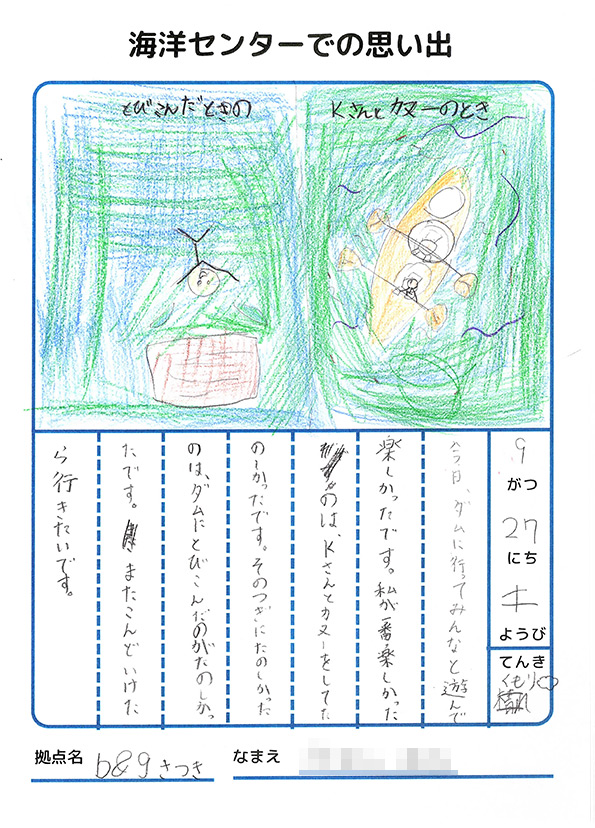 海洋センターでの思い出
とびこんだときの
Kさんとカヌーのとき
9
がつ
27
にち
木
ようび
てんき
くもり
今日、ダムに行ってみんなと遊んで
楽しかったです。私が一番楽しかった
のは、Kさんとカヌーをしてた
のしかったです。そのつぎにたのしかった
のは、ダムにとびこんだのがたのしかっ
たです。またこんどいけた
ら行きたいです。
拠点名 b&gさつき
なまえ